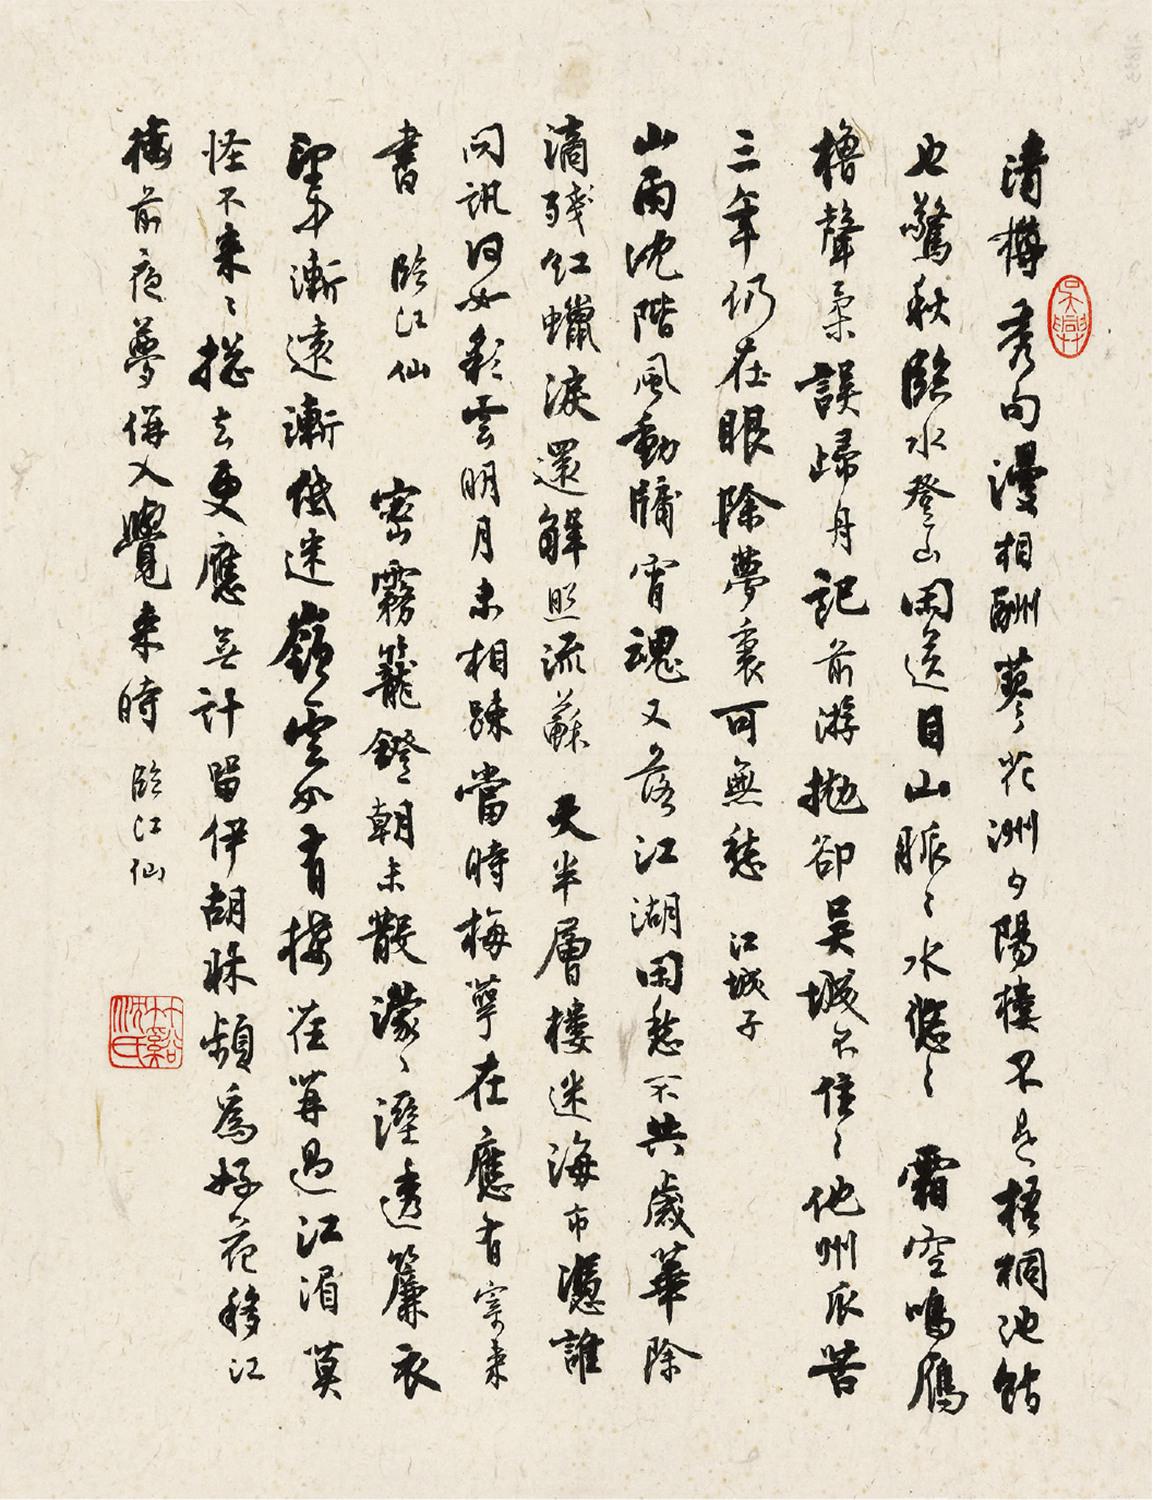 清樽秀句漫相酬蓼花洲夕陽樓不是梧桐池館
也驚秋臨水登山閑送目山脈〻水悠〻 霜空鳴雁
櫓聲柔誤歸舟記前游拋卻吴城不住〻他州瓜苦
三年仍在眼除夢裏可無愁 江城子
山雨沈階風動牖宵魂又落江湖閑愁不共歲華除
滴殘紅蠟淚還解照流蘇 天半層樓迷海市憑誰
問訊何如彩雲明月未相疎當時梅萼在應有寄來
書 臨江仙 密霧籠鐙朝未散濛〻溼透簾衣
望中漸遠漸低迷嶺雲如有樣荏苒過江湄莫
怪不來〻搃去更應無計留伊胡牀頻爲好花移江
梅前夜夢併入覺來時 臨江仙
吴興
竹谿沈氏